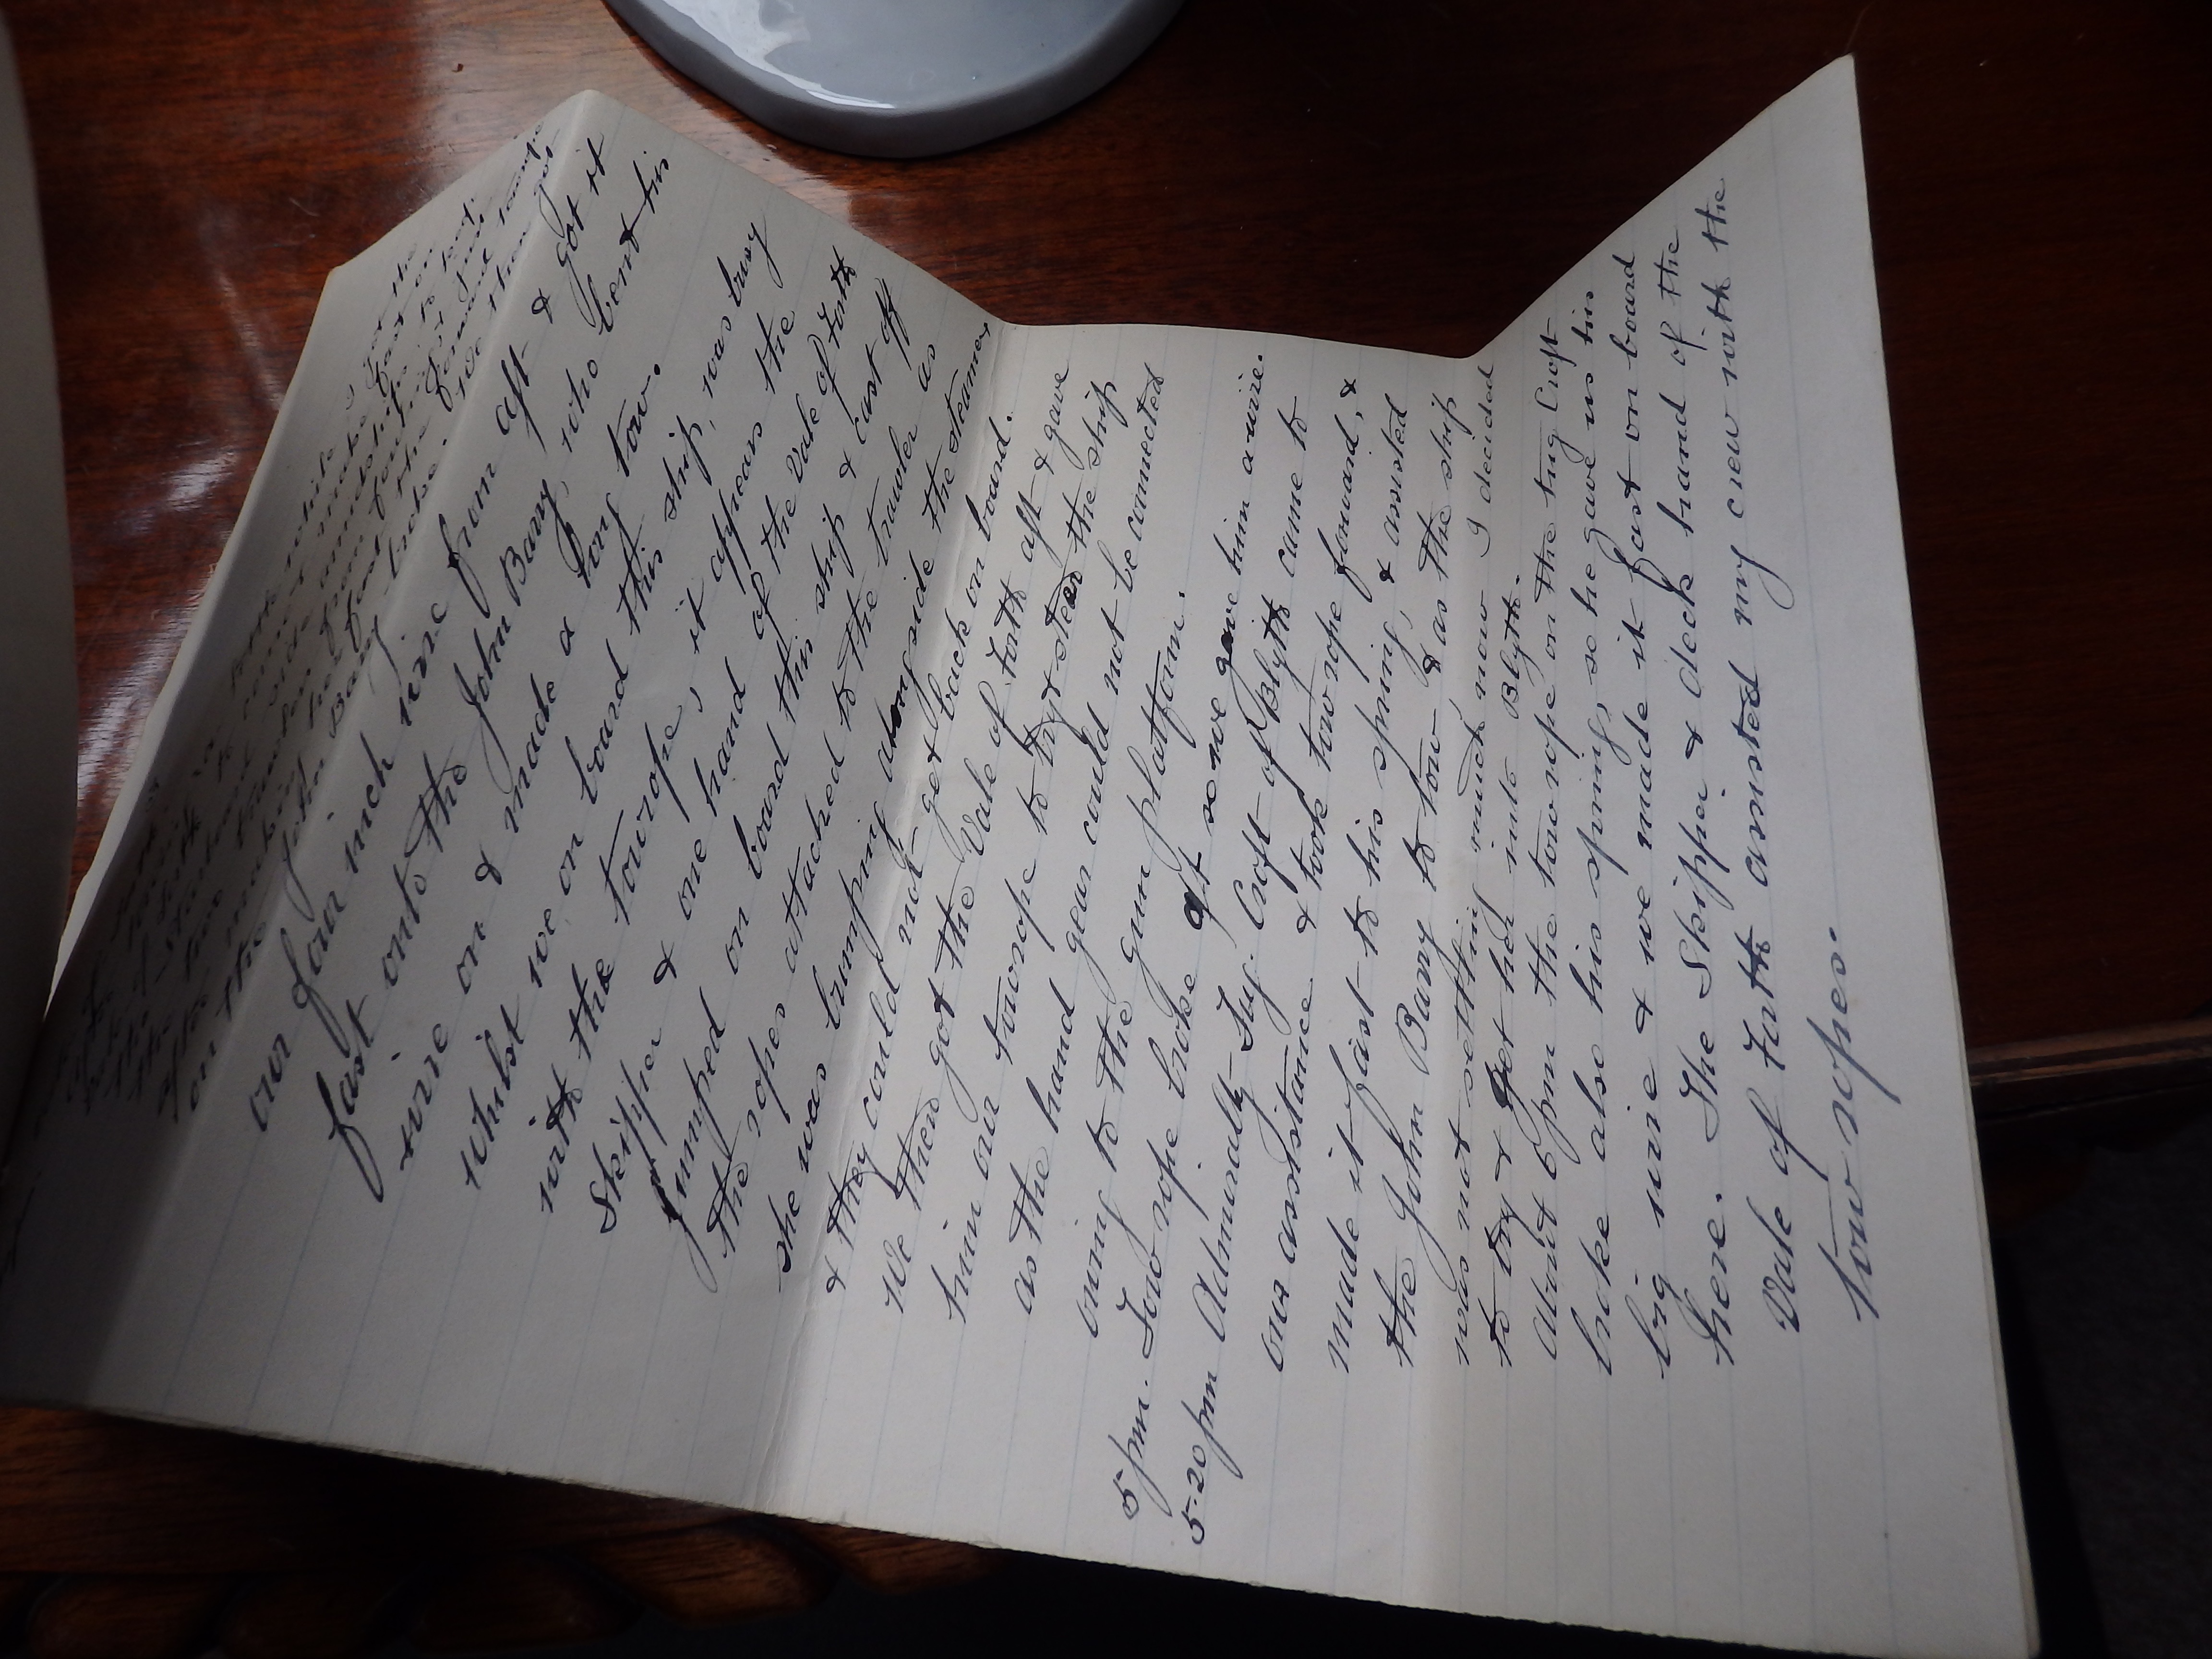 I got the
while
make fast on
amidships to port
side
from
the forward towrope
making her fast
on the John Barry broke. We then got
our four inch wire from aft & got it
fast onto the John Barry, who bent his
wire on & made a long tow.
Whilst we on board this ship, was busy
with the towrope, it appears the
Skipper & one hand of the Vale of Forth
jumped on board this ship & cast off
the ropes attached to the trawler as
she was bumping alongside the steamer
& they could not get back on board.
We then got the Vale of Forth aft & gave
him our towrope to try & steer the ship
as the hand gear could not be connected
owing to the gun platform.
5 pm. Tow rope broke aft so we gave him a wire.
5-20 pm Admiralty Tug. Croft of Blyth came to
our assistance & took towrope forward, &
made it fast to his spring, & assisted
the John Barry to tow & as the ship
was not settling much now I decided
to try & get her into Blyth.
About 6 pm the towrope on the tug Croft
broke also his spring, so he gave us his
big wire & we made it fast on board
here. The Skipper & deck hand of the
Vale of Forth assisted my crew with the
tow ropes.